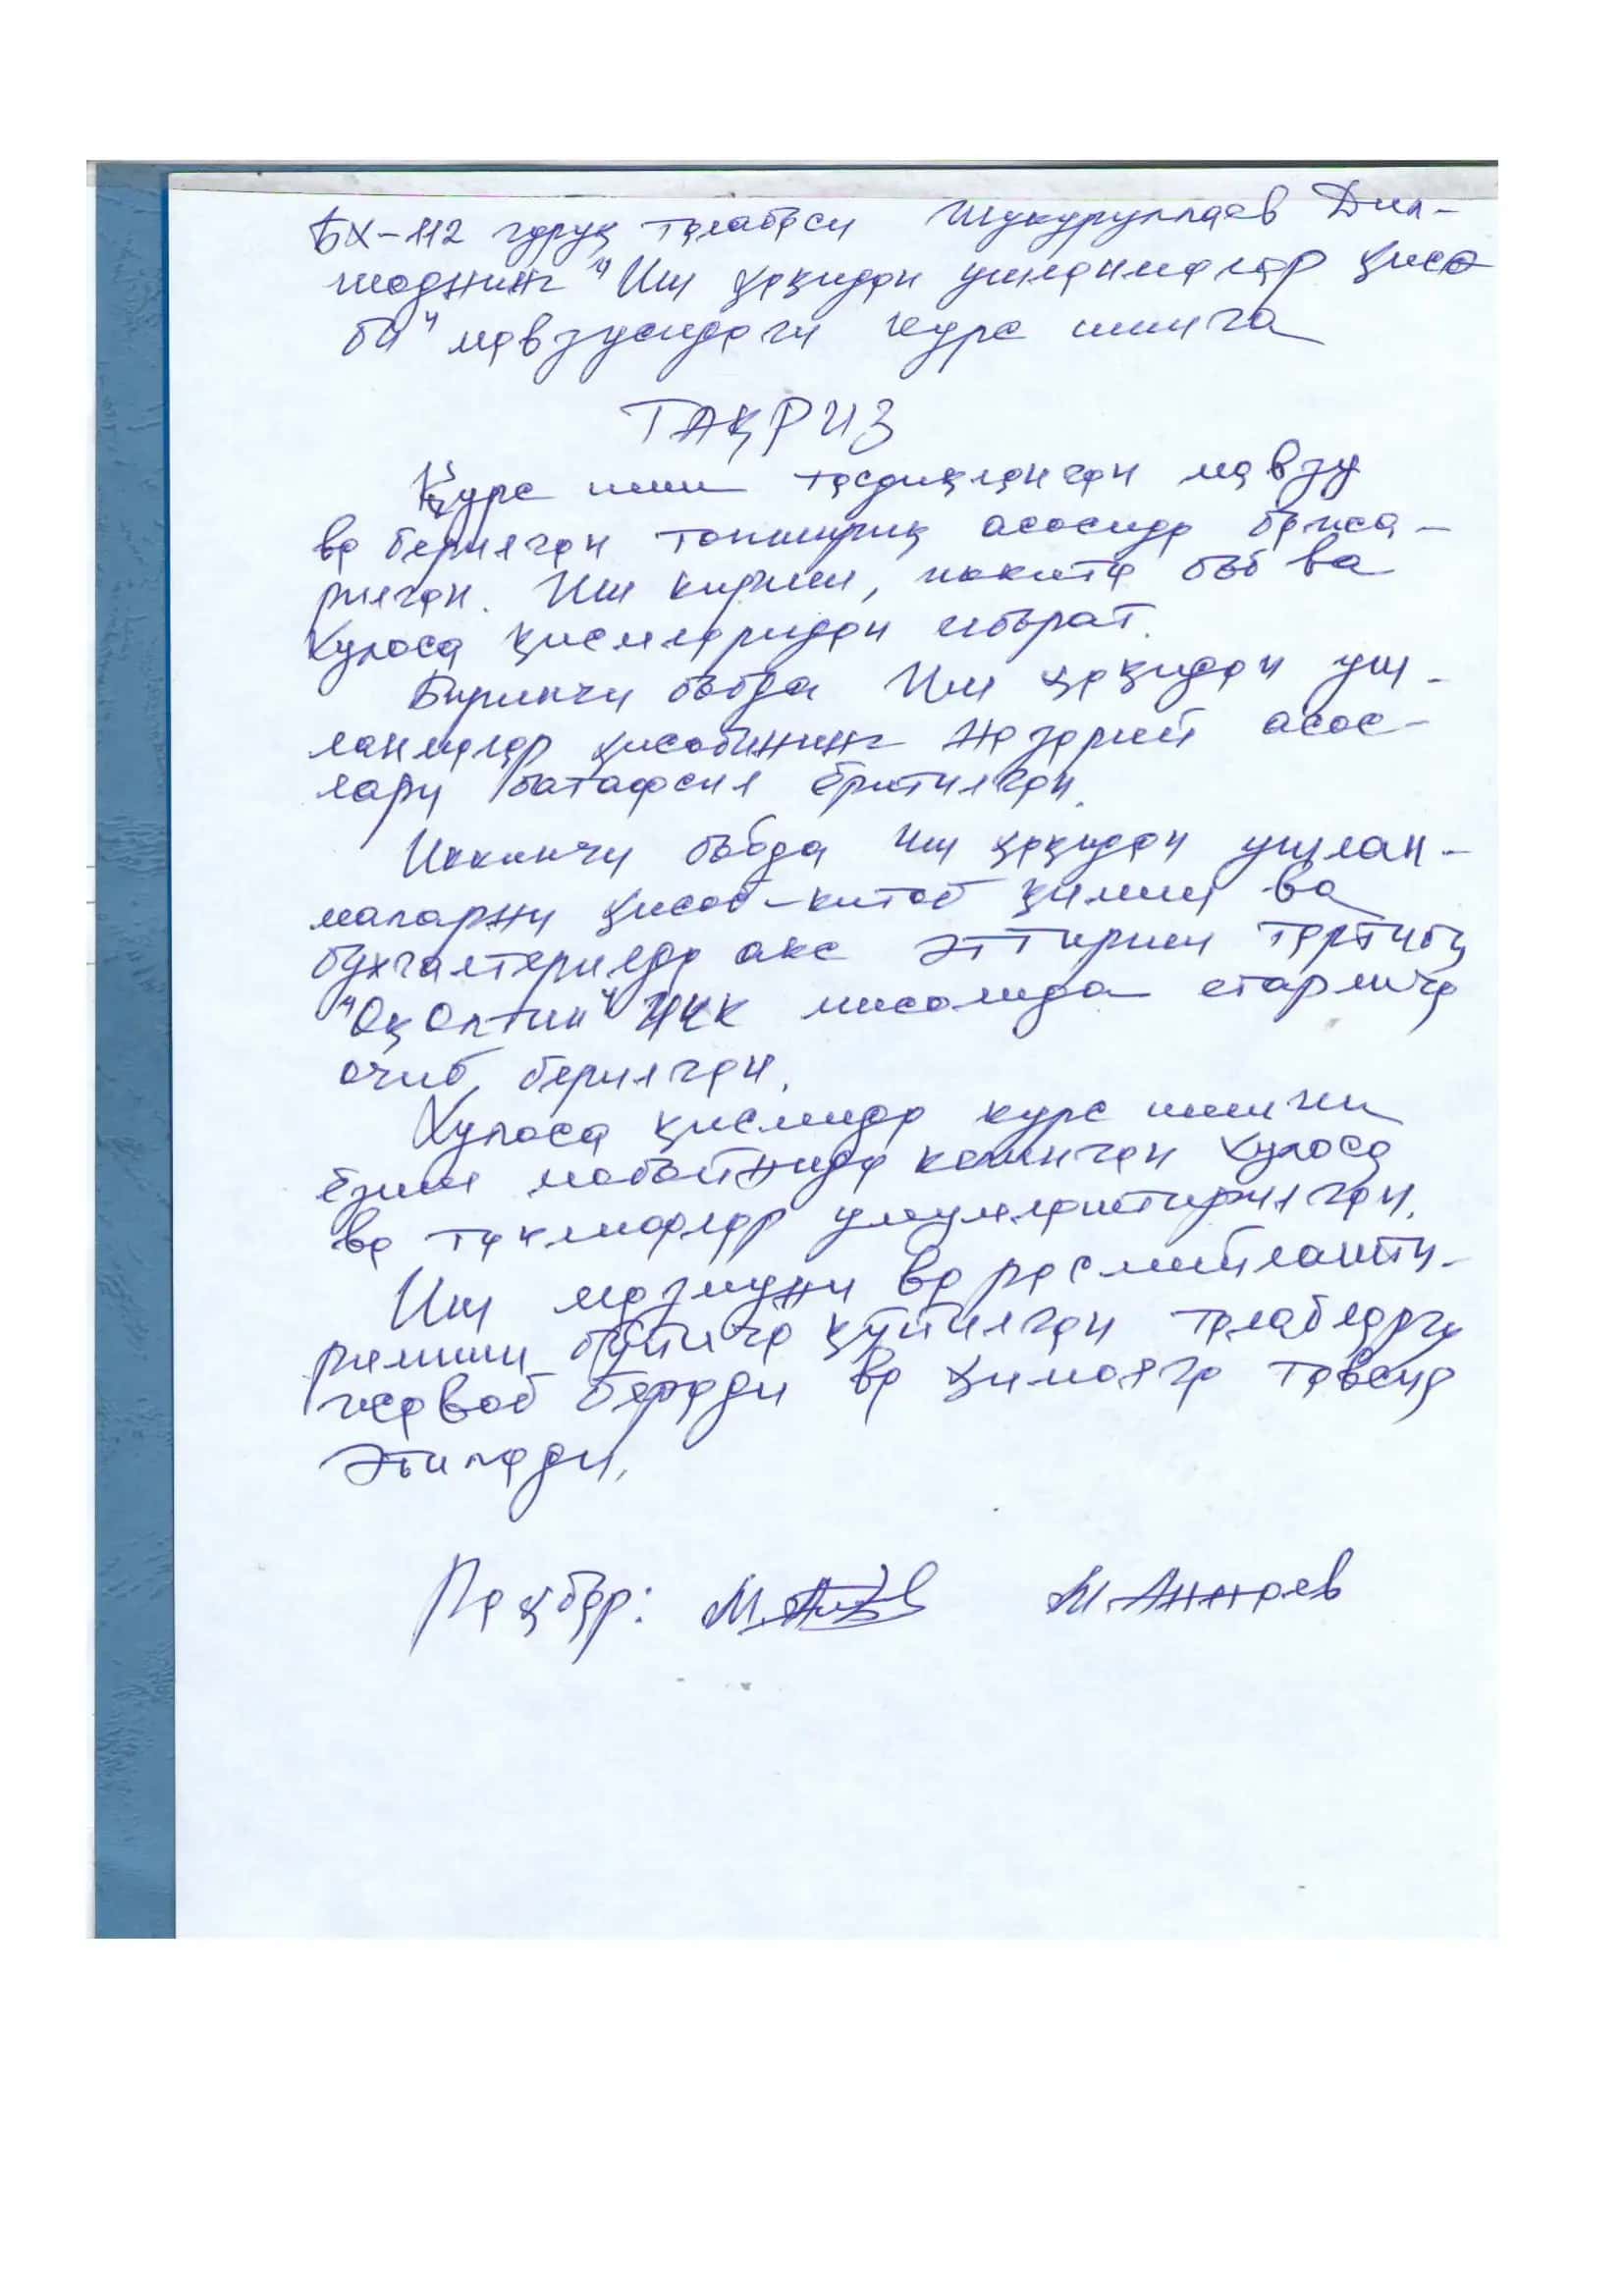 БХ-112 гуруҳ талабаси Шукуруллаев Дил-
шоднинг "Иш ҳақидан ушланмалар ҳисо
би" мавзусидаги курс ишига
ТАҚРИЗ
Курс иши тасдиқланган мавзу
ва берилган топшириқ асосида бажа-
рилган. Иш кириш, иккита боб ва
хулоса қисмларидан иборат.
Биринчи бобда Иш ҳақидан уш-
ланмалар ҳисобининг назарий асос-
лари батафсил ёритилган.
Иккинчи бобда иш ҳақидан ушлан-
маларни ҳисоб-китоб қилиш ва
бухгалтерияда акс эттириш тартиби
"Оқ Олтин" мисолида етарлича
очиб берилган.
Хулоса қисмида курс ишини
ёзиш мобайнида келинган хулоса
ва таклифлар умумлаштирилган.
Иш мазмуни ва расмийлашти-
рилиши бўйича қўйилган талабларга
жавоб беради ва ҳимояга тавсия
этилади.
Раҳбар: М. Аннаев